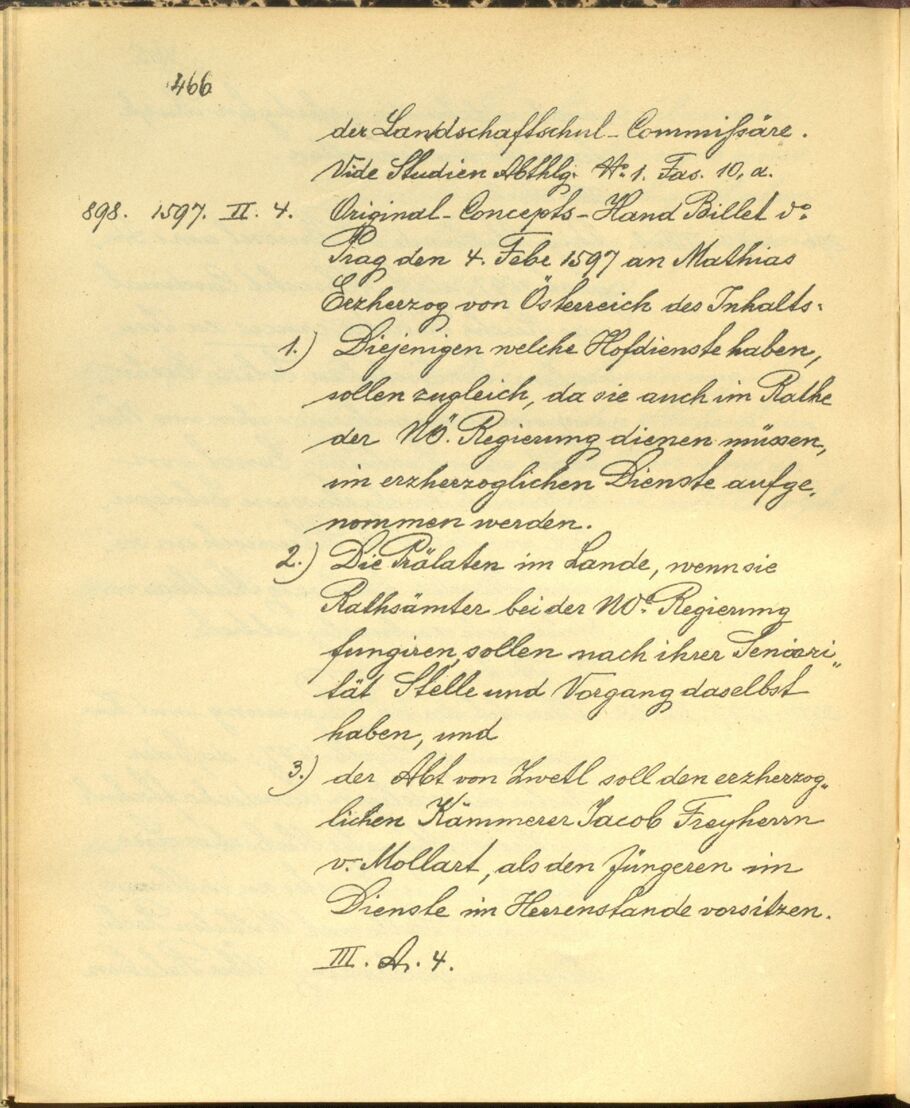 466
der Landschaftschul-Commißäre.
Vide Studien Abthlg. No. 1. Fas. 10, a.
898. 1597. II. 4. Original-Concepts-Hand Billet vo.
Prag den 4. Febe 1597 an Mathias
Erzherzog von Österreich des Inhalts:
1.) Diejenigen welche Hofdienste haben,
sollen zugleich, da sie auch im Rathe
der NÖ. Regierung dienen müssen,
im erzherzoglichen Dienste aufge,
nommen werden.
2.) Die Prälaten im Lande, wenn sie
Rathsämter bei der NÖ. Regierung
fungiren, sollen nach ihrer Seniori„
tät Stelle und Vorgang daselbst
haben, und
3.) der Abt von Zwetl soll den erzherzog„
lichen Kämmerer Jacob Freyherrn
v. Mollart, als den Jüngeren im
Dienste im Herrenstande vorsitzen.
III. A. 4.